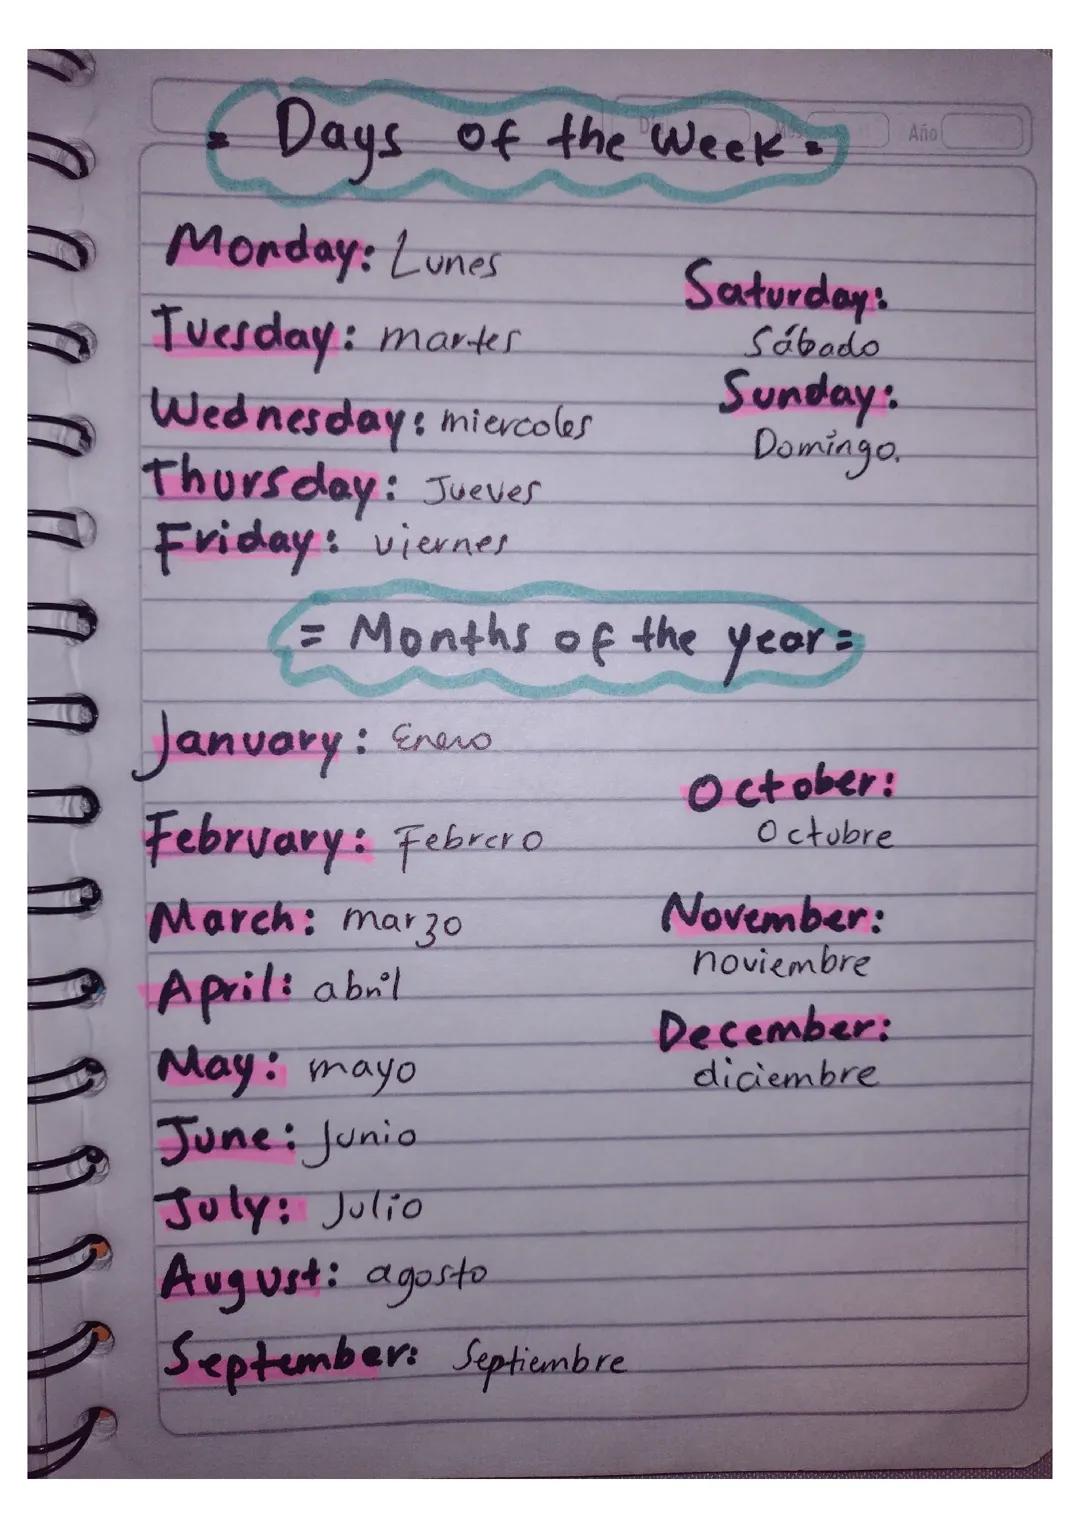 = Days of the Week =
Año
Monday: Lunes
Tuesday: martes
Wednesday: miercoles
Thursday: Jueves
Friday: viernes
Saturday:
Sábado
Sunday:
Domingo.
= Months of the year =
January: Enero
February: Febrero
March: marzo
April: abril
May: mayo
June: Junio
July: Julio
August: agosto
September: Septiembre
October:
Octubre
November:
noviembre
December:
diciembre